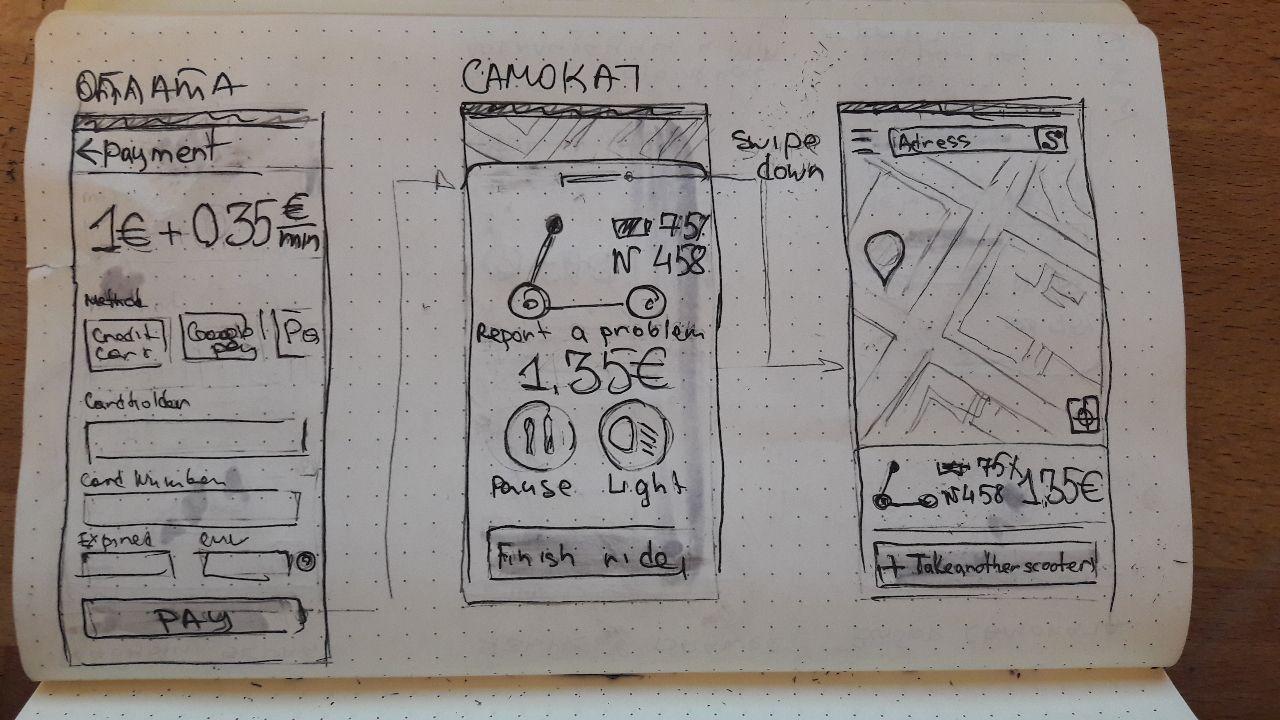 ОПЛАТА
← payment
1€ + 0 35 €/min
Method
Credit cart
Google pay
Pa
Cardholder
Card Number
Expired
cvv
PAY
САМОКАТ
75%
№ 458
Report a problem
1,35€
Pause
Light
Finish ride
swipe
down
Adress
75%
№458
1,35€
+ Take another scooter